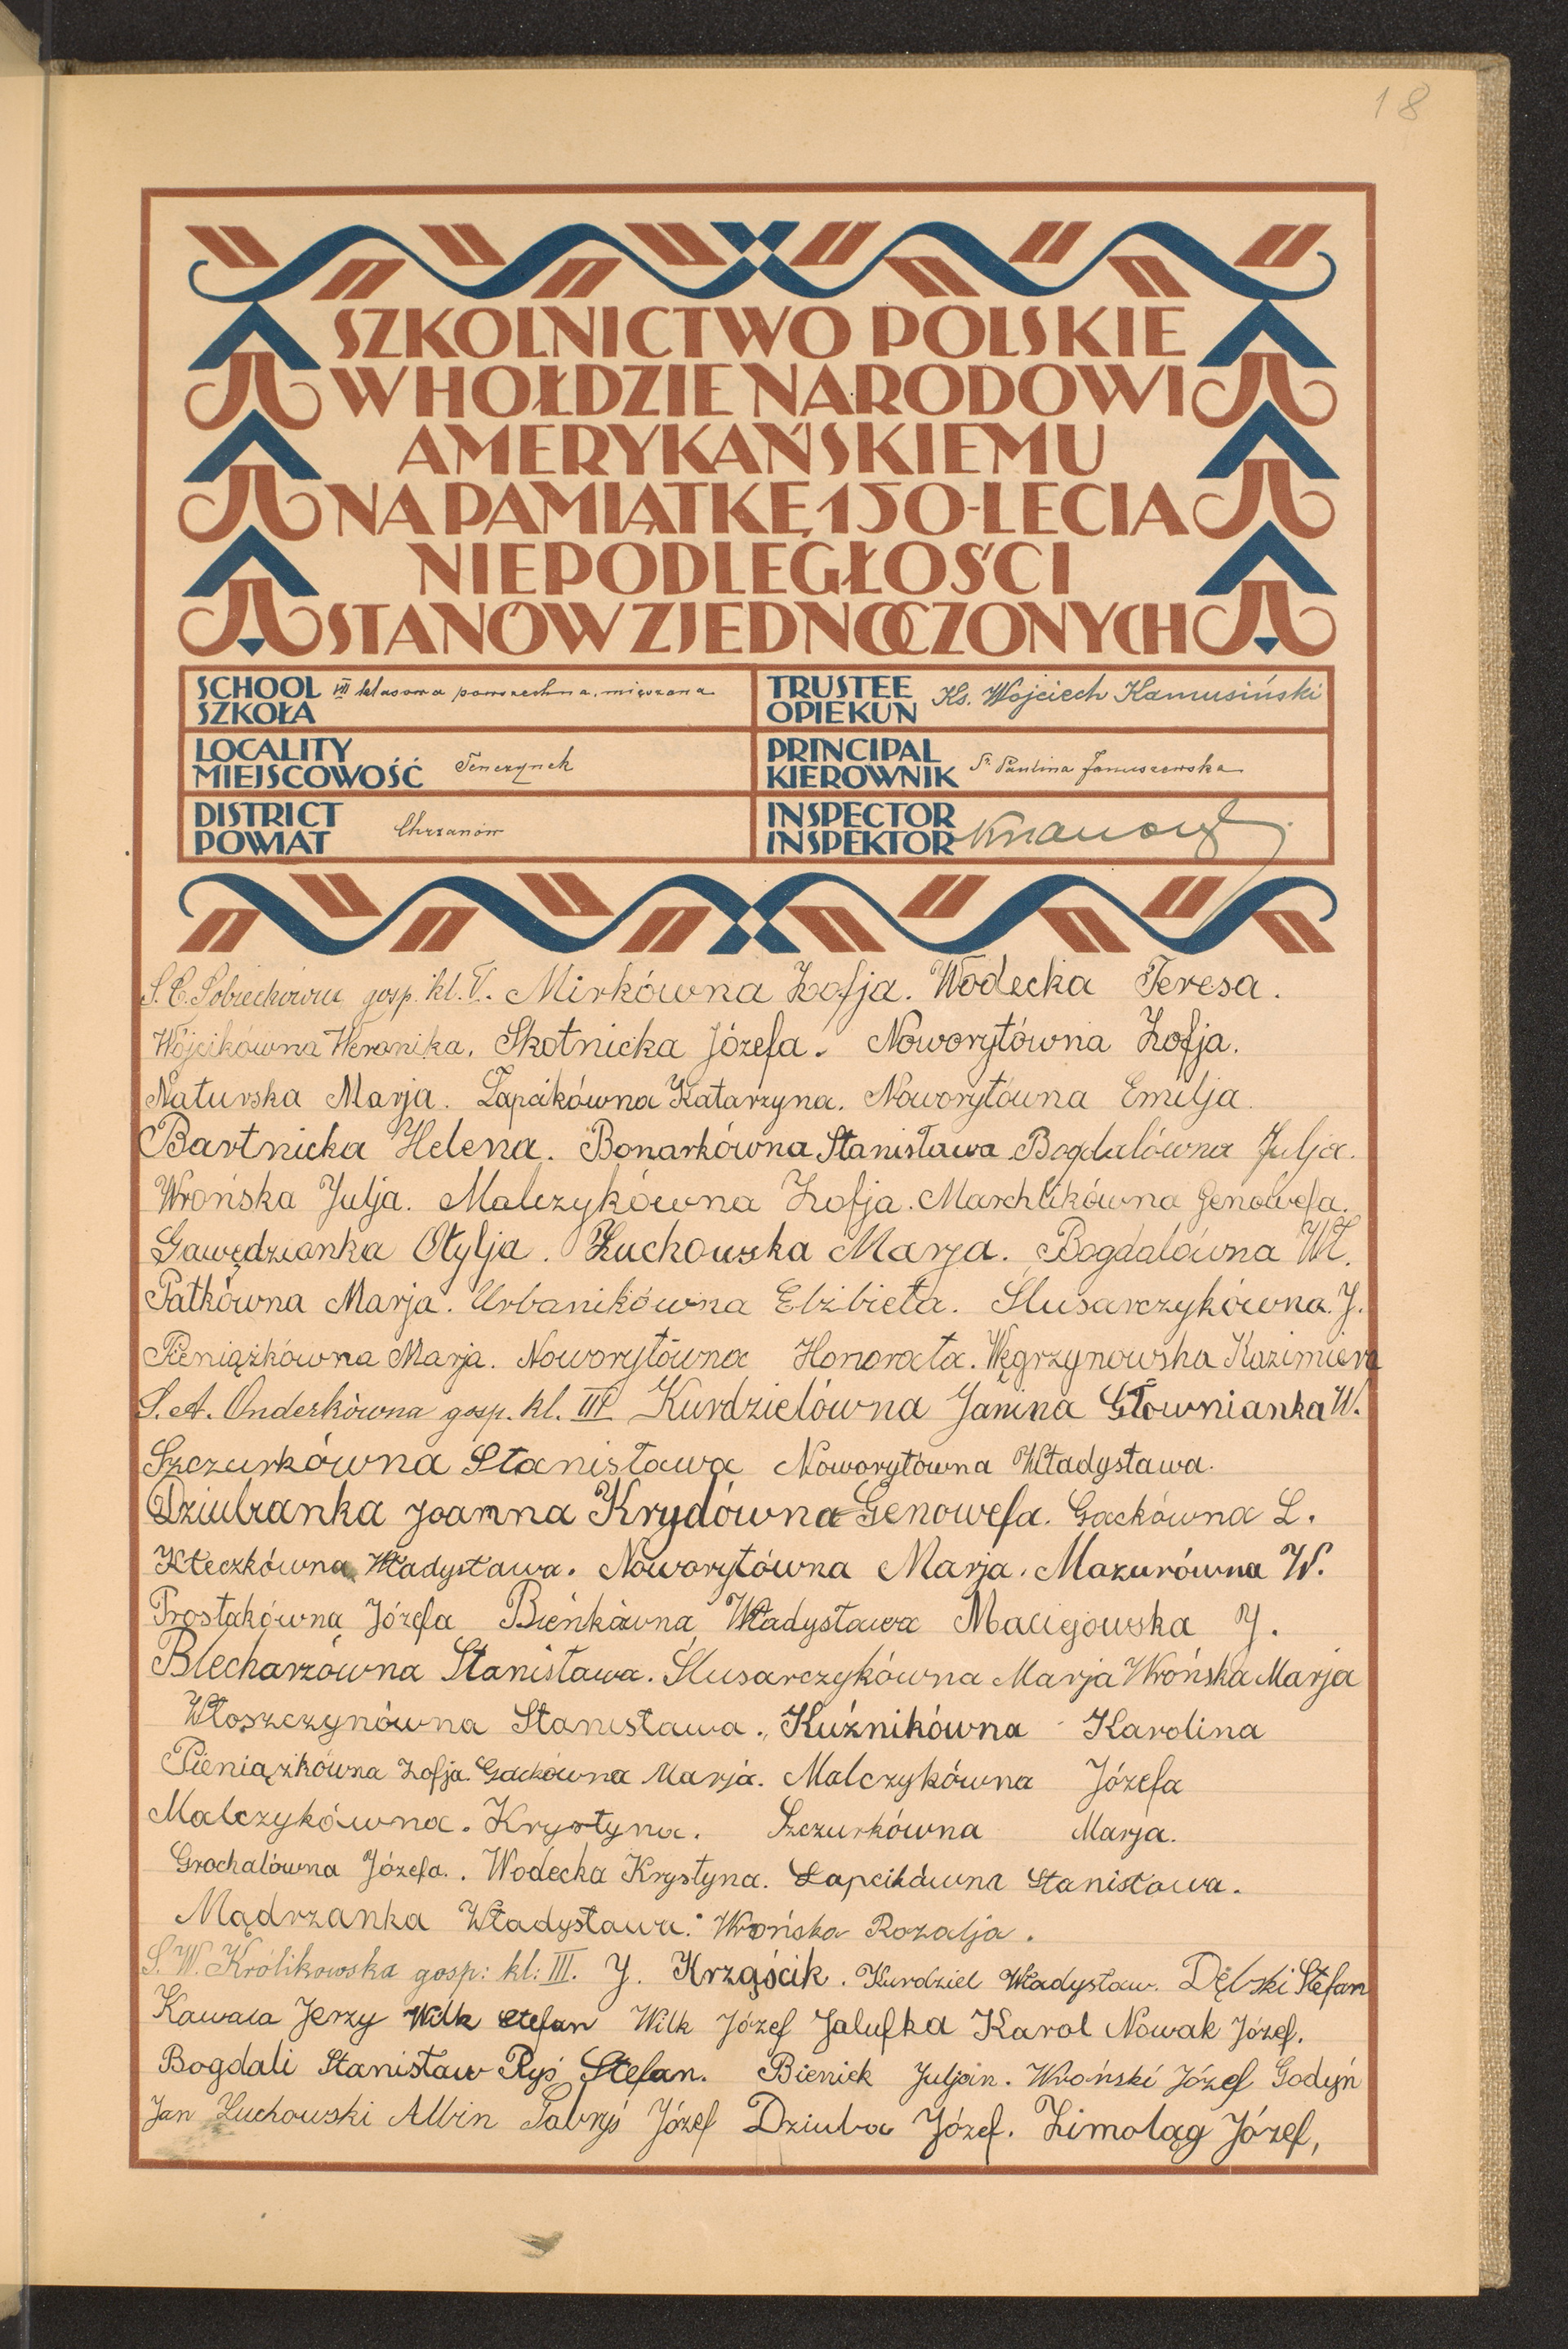 18
SZKOLNICTWO POLSKIE
W HOŁDZIE NARODOWI
AMERYKAŃSKIEMU
NA PAMIĄTKĘ 150-LECIA
NIEPODLEGŁOŚCI
STANÓW ZJEDNOCZONYCH
SCHOOL VII klasowa powszechna, mieszana
SZKOŁA
TRUSTEE Ks. Wojciech Kamusiński
OPIEKUN
LOCALITY Tenczynek
MIEJSCOWOŚĆ
PRINCIPAL S. Paulina Januszewska
KIEROWNIK
DISTRICT Chrzanów
POWIAT
INSPECTOR
INSPEKTOR
gosp. kl. V. Mirkówna Zofja. Wodecka Teresa.
Wójcikówna Weronika. Skotnicka Józefa. Noworytówna Zofja.
Naturska Marja. Łapcikówna Katarzyna. Noworytówna Emilja.
Bartnicka Helena. Bonarkówna Stanisława Bogdalówna Julja.
Wrońska Julja. Malczykówna Zofja. Marchlikówna Genowefa.
Gawędzianka Otylja. Żuchowska Marja. Bogdalówna Wł.
Patkówna Marja. Urbanikówna Elżbieta. Slusarczykówna. J.
Pieniążkówna Marja. Noworytówna Honorata. Węgrzynowska Kazimiera
S. A. Onderkówna gosp. kl. III Kurdzielówna Janina Głownianka W.
Szczurkówna Stanisława Noworytówna Władysława.
Dziubranka Joanna Krydówna Genowefa. Gackówna L.
Kłeczkówna Władysława. Noworytówna Marja. Mazurówna W.
Prostakówna Józefa Bieńkówna Władysława Maciejowska J.
Blecharzówna Stanisława. Ślusarczykówna Marja Wrońska Marja
Włoszczynówna Stanisława. Kuźnikówna Karolina
Pieniążkówna Zofja. Gackówna Marja. Malczykówna Józefa
Malczykówna. Krystyna. Szczurkówna Marja.
Grochalówna Józefa. Wodecka Krystyna. Łapcikówna Stanisława.
Mądrzanka Władysława. Wrońska Rozalja.
S. W. Królikowska gosp: kl: III. J. Krząścik. Kurdziel Władysław. Dębski Stefan
Kawala Jerzy Wilk Stefan Wilk Józef Jalufka Karol Nowak Józef.
Bogdali Stanisław Ryś Stefan. Bieniek Juljan. Wroński Józef Godyń
Jan Żuchowski Albin Gabryś Józef Dziuba Józef. Zimoląg Józef,